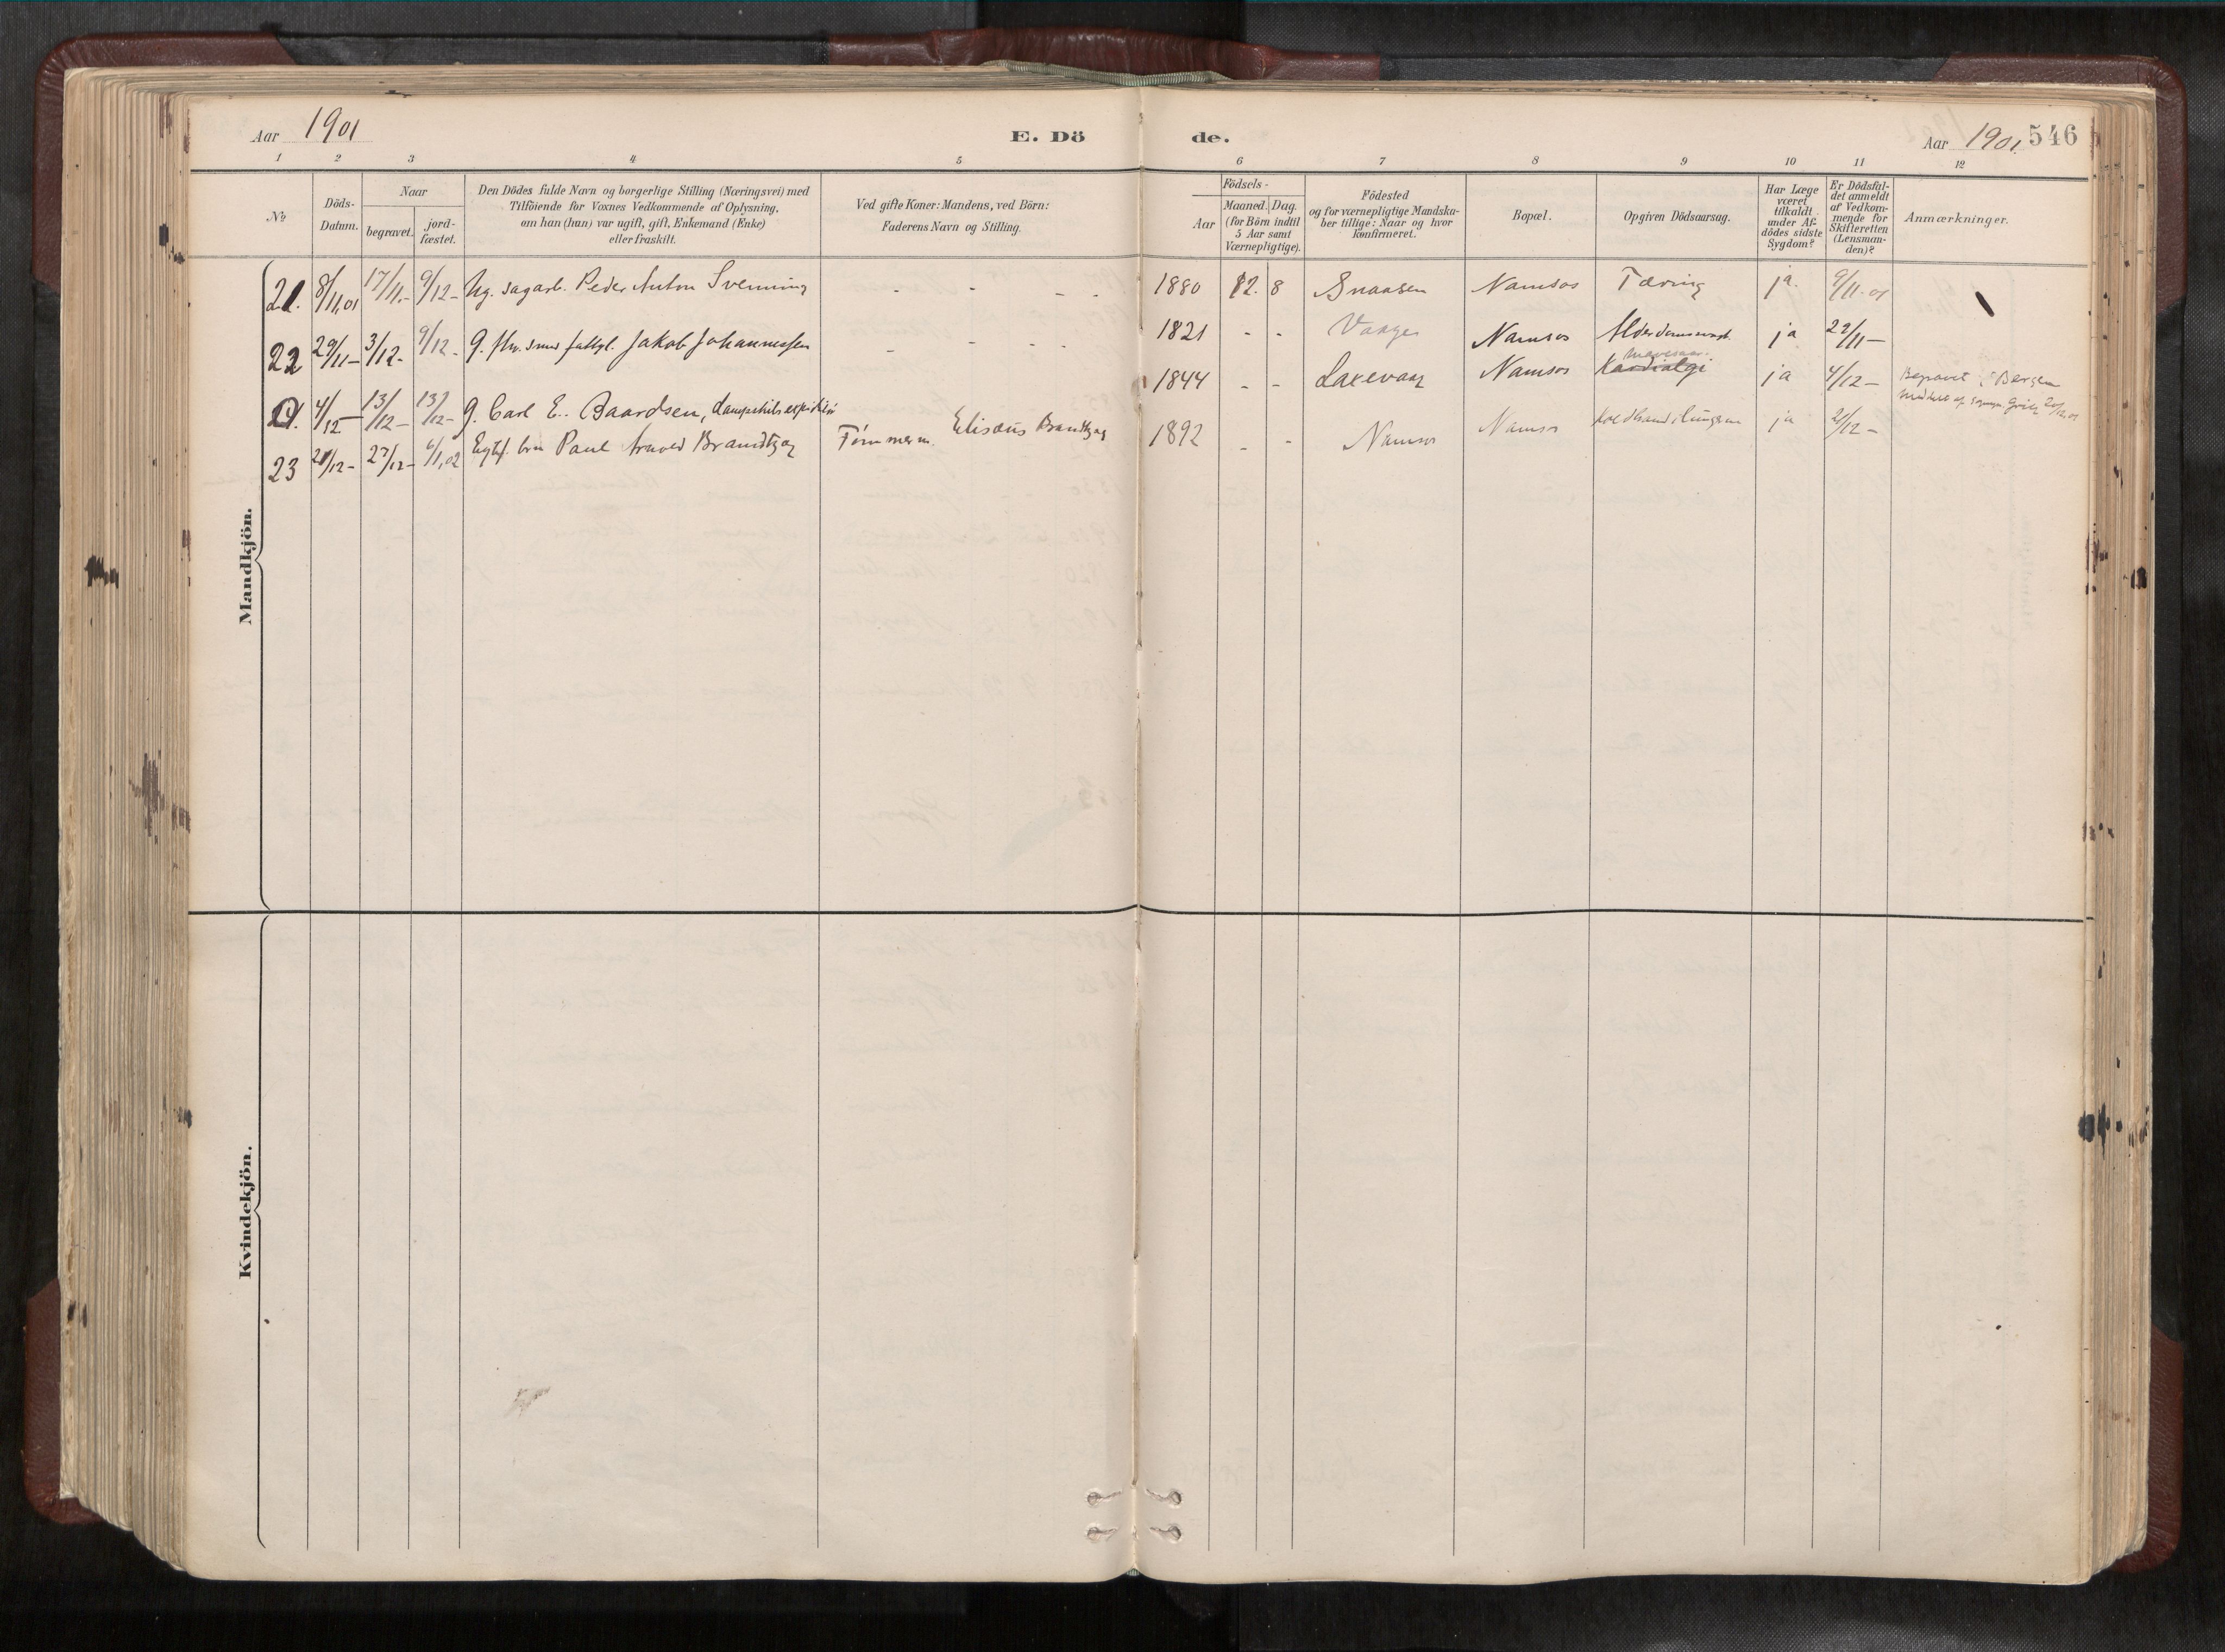 Aar 1901
E. Dö
de.
Aar 1901. 546
1 2 3 4 5 6 7 8 9 10 11 12
№
Döds-
Datum.
Naar
begravet.
jord-
fæstet.
Den Dödes fulde Navn og borgerlige Stilling (Næringsvei) med
Tilföiende for Voxnes Vedkommende af Oplysning,
om han (hun) var ugift, gift, Enkemand (Enke)
eller fraskilt.
Ved gifte Koner: Mandens, ved Börn:
Faderens Navn og Stilling.
Födsels-
Aar
Maaned. Dag.
(for Börn indtil
5 Aar samt
Værnepligtige).
Födested
og for værnepligtige Mandska-
ber tillige: Naar og hvor
konfirmeret.
Bopæl.
Opgiven Dödsaarsag.
Har Læge
været
tilkaldt
under Af-
dödes sidste
Sygdom?
Er Dödsfal-
det anmeldt
af Vedkom-
mende for
Skifteretten
(Lensman-
den)?
Anmærkninger.
Mandkjön.
21. 8/11,01 17/11.- 9/12- Ug. sagarb. Peder Anton Svenning - - - - 1880 12. 8 Snaasen Namsos Tæring ja. 9/11.01
22 29/11- 3/12- 9/12- G. Jakob Johannessen - - - - 1821 - - Namsos ja 29/11-
4/12- 13/12- 13/12- G. Carl E. Baardsen, dampskibsexpeditør 1844 - - Laxevaag Namsos Kardialgi ja 4/12- Begravet i Bergen
23 21/12- 27/12- 6/1,02 Paul Arnold Brandtzæg Tömmerm. Elisæus Brandtzæg 1892 - - Namsos Namsos ja 21/12-
Kvindekjön.